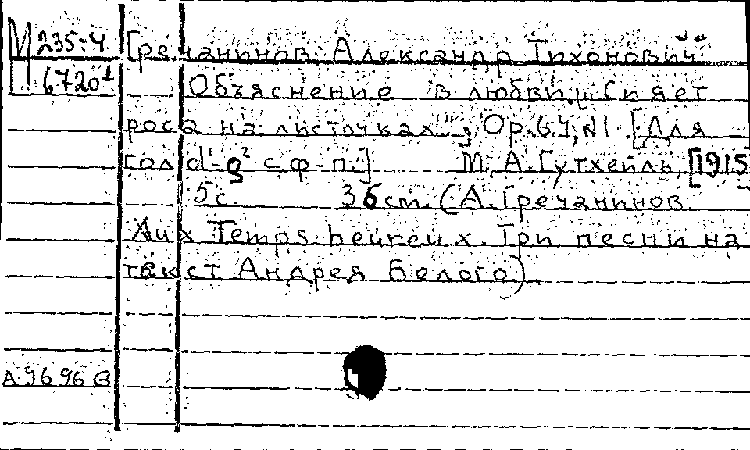 М 235-4
6720
Гречанинов, Александр Тихонович
Объяснение в любви. "Сияет
роса на листочках", Ор. 64, №1. [Для
гол. d¹-g² с ф-п.] М. А. Гутхейль, [1915
5с. 36 cm. (А. Гречанинов.
Aux Temps heureux. Три песни на
текст Андрея Белого)
А 9696